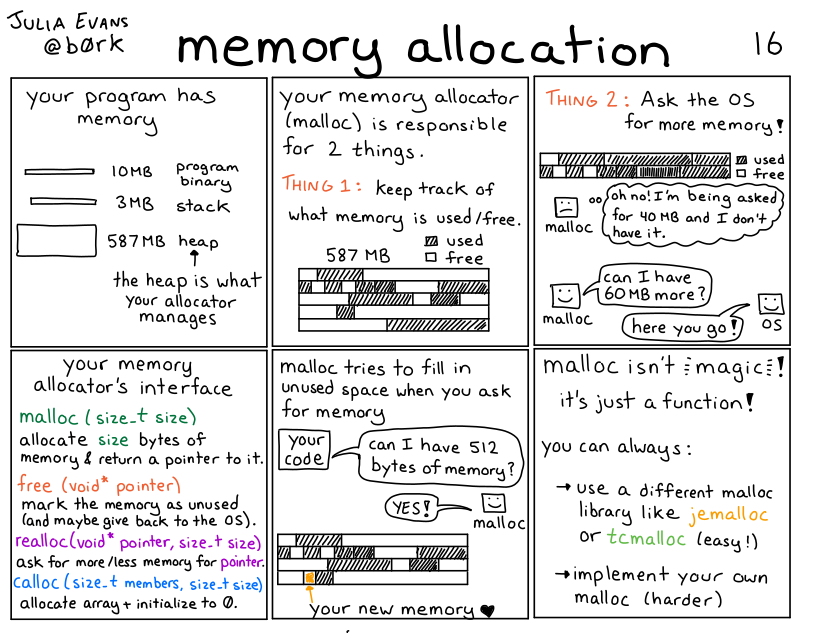 JULIA EVANS
@b0rk
memory allocation
16
your program has
memory
10MB program
binary
3MB stack
587MB heap
the heap is what
your allocator
manages
your memory allocator
(malloc) is responsible
for 2 things.
THING 1: keep track of
what memory is used/free.
587 MB
used
free
THING 2: Ask the OS
for more memory!
used
free
oh no! I'm being asked
for 40 MB and I don't
have it.
malloc
can I have
60 MB more?
malloc
here you go!
OS
your memory
allocator's interface
malloc (size_t size)
allocate size bytes of
memory & return a pointer to it.
free (void* pointer)
mark the memory as unused
(and maybe give back to the OS).
realloc(void* pointer, size_t size)
ask for more/less memory for pointer.
calloc (size_t members, size_t size)
allocate array + initialize to 0.
malloc tries to fill in
unused space when you ask
for memory
your
code
can I have 512
bytes of memory?
YES!
malloc
your new memory ♥
malloc isn't magic!
it's just a function!
you can always:
→ use a different malloc
library like jemalloc
or tcmalloc (easy!)
→ implement your own
malloc (harder)